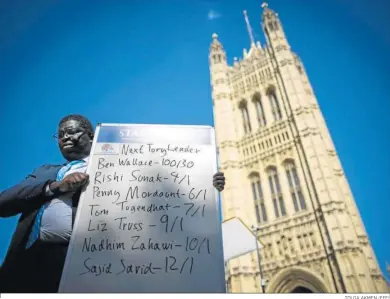 Next Tory Leader
Ben Wallace - 100/30
Rishi Sunak - 4/1
Penny Mordaunt - 6/1
Tom Tugendhat - 7/1
Liz Truss - 9/1
Nadhim Zahawi - 10/1
Sajid Savid - 12/1
TOLGA AKMEN / EFE